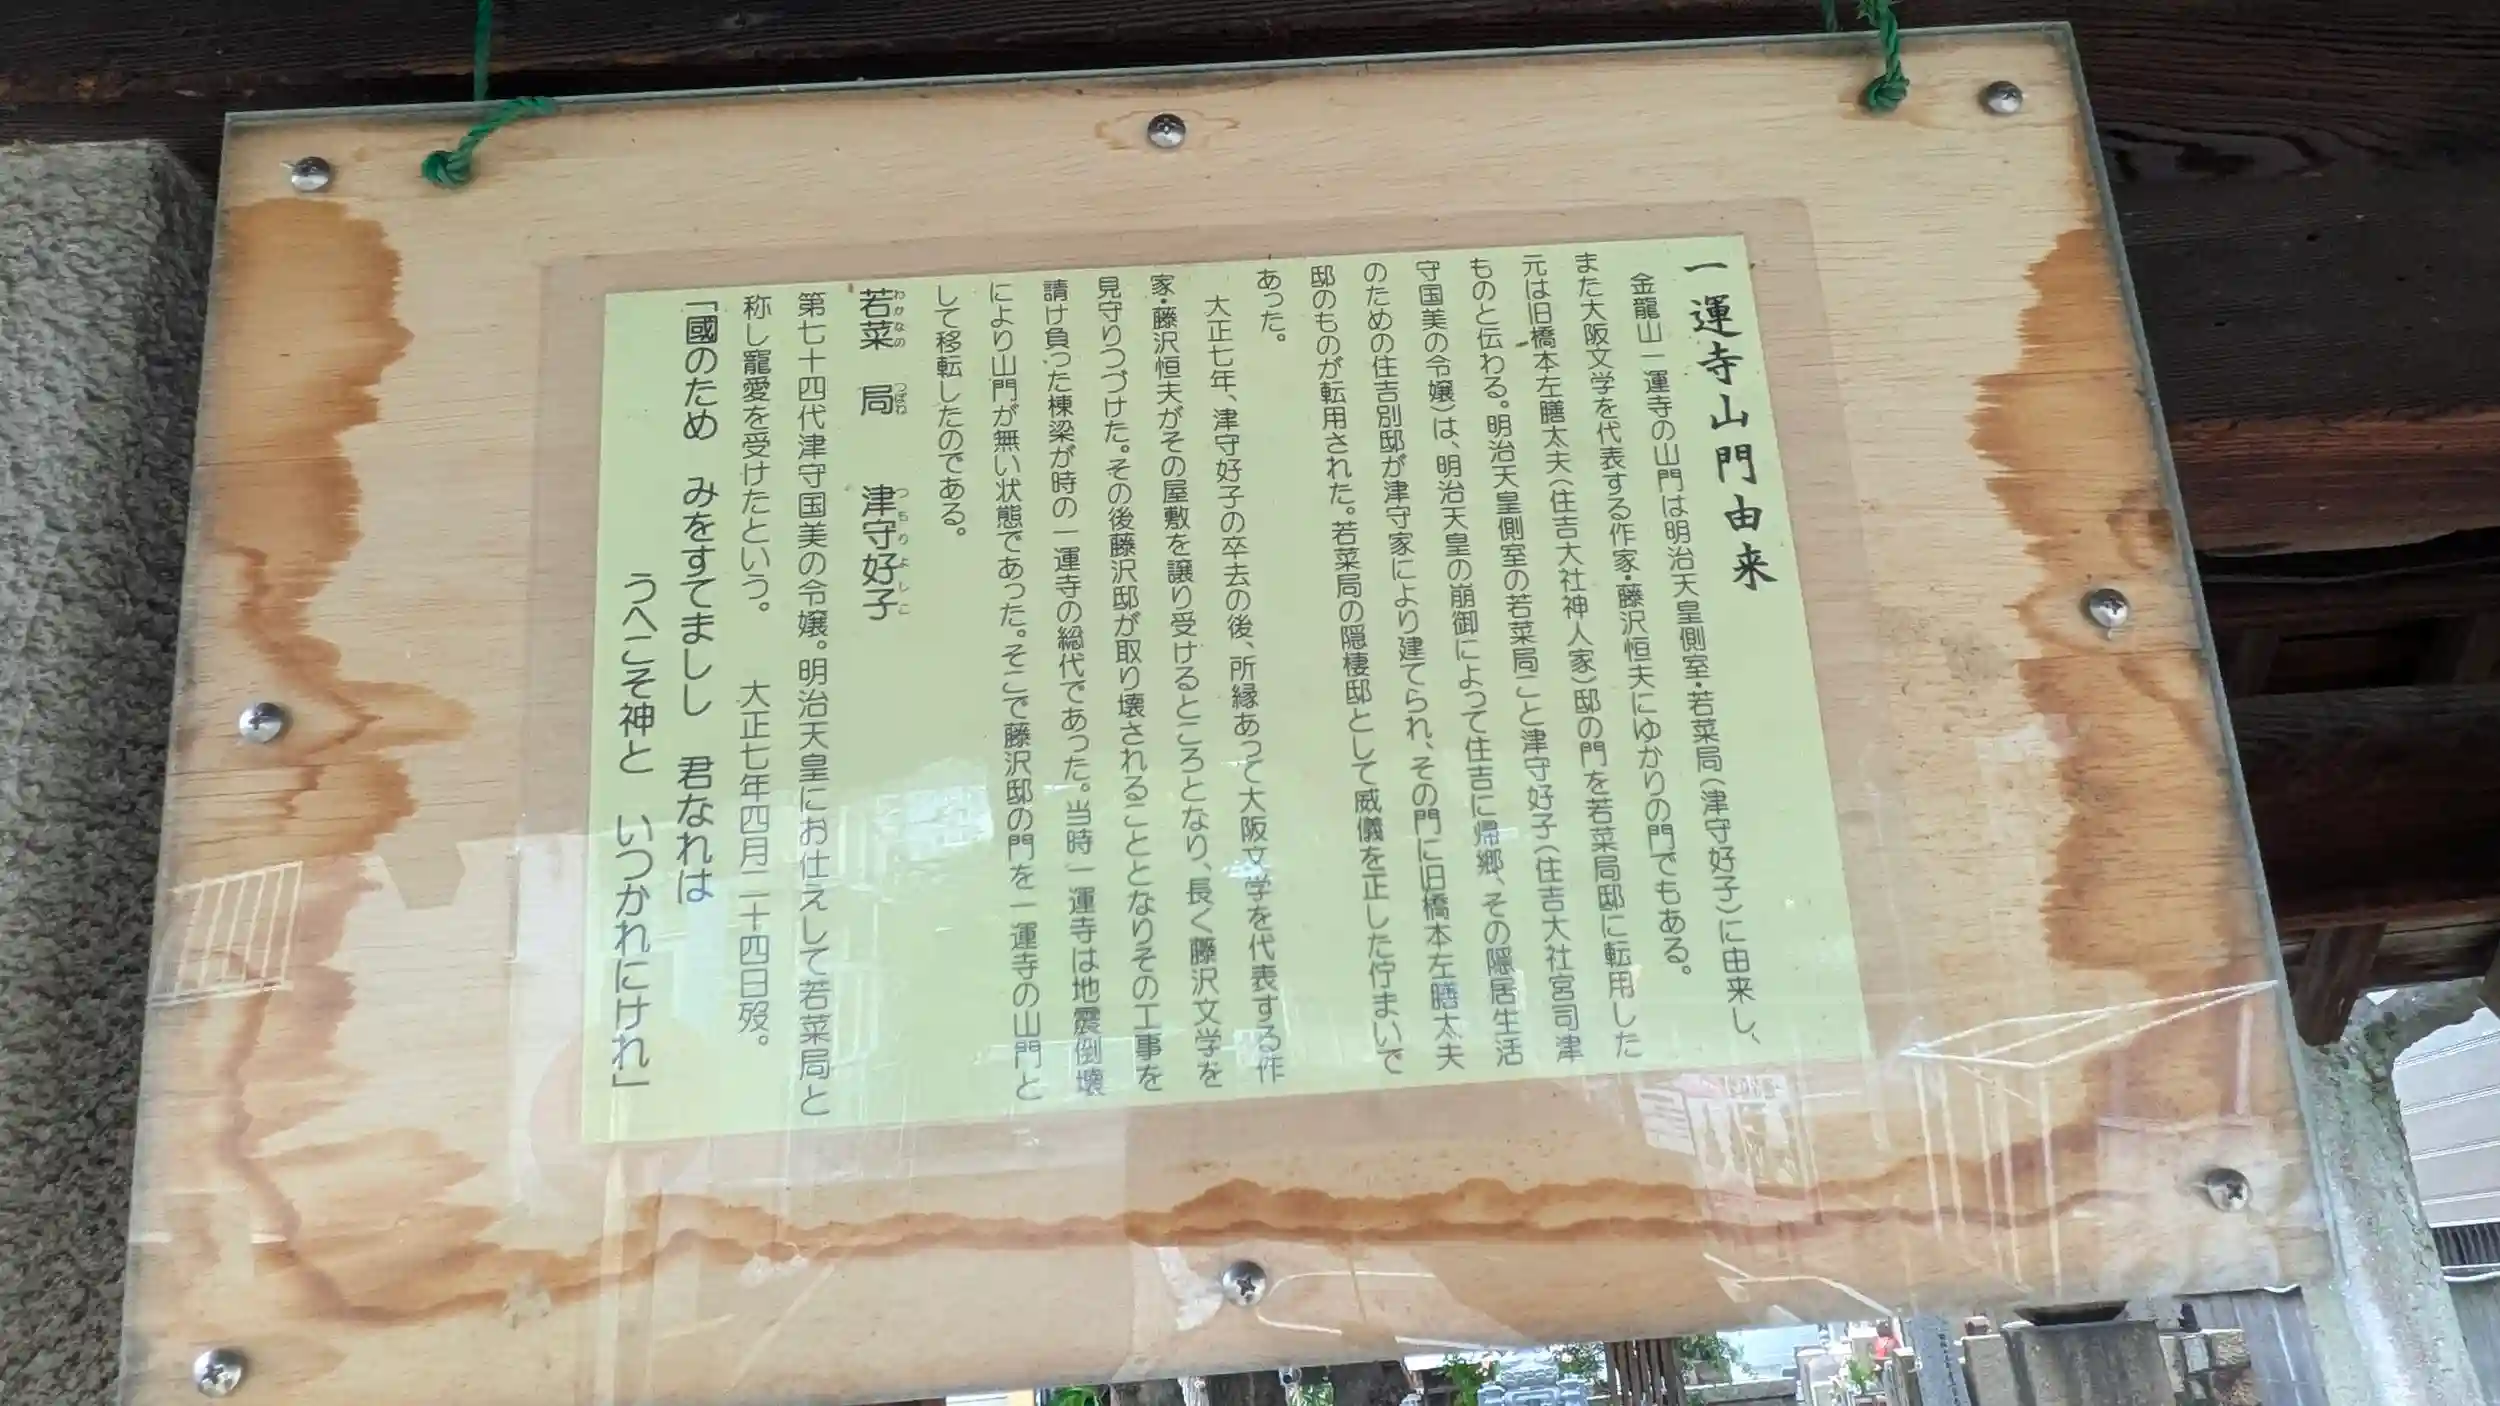 一運寺山門由来
金龍山一運寺の山門は明治天皇側室・若菜局（津守好子）に由来し、
また大阪文学を代表する作家・藤沢恒夫にゆかりの門でもある。
元は旧橋本左膳太夫（住吉大社神人家）邸の門を若菜局邸に転用した
ものと伝わる。明治天皇側室の若菜局こと津守好子（住吉大社宮司津
守国美の令嬢）は、明治天皇の崩御によって住吉に帰郷、その隠居生活
のための住吉別邸が津守家により建てられ、その門に旧橋本左膳太夫
邸のものが転用された。若菜局の隠棲邸として威儀を正した佇まいで
あった。
大正七年、津守好子の卒去の後、所縁あって大阪文学を代表する作
家・藤沢恒夫がその屋敷を譲り受けるところとなり、長く藤沢文学を
見守りつづけた。その後藤沢邸が取り壊されることとなりその工事を
請け負った棟梁が時の一運寺の総代であった。当時一運寺は地震倒壊
により山門が無い状態であった。そこで藤沢邸の門を一運寺の山門と
して移転したのである。
若菜 局 津守好子
わかなの つぼね つもりよしこ
第七十四代津守国美の令嬢。明治天皇にお仕えして若菜局と
称し寵愛を受けたという。 大正七年四月二十四日歿。
「國のため みをすてましし 君なれは
うへこそ神と いつかれにけれ」